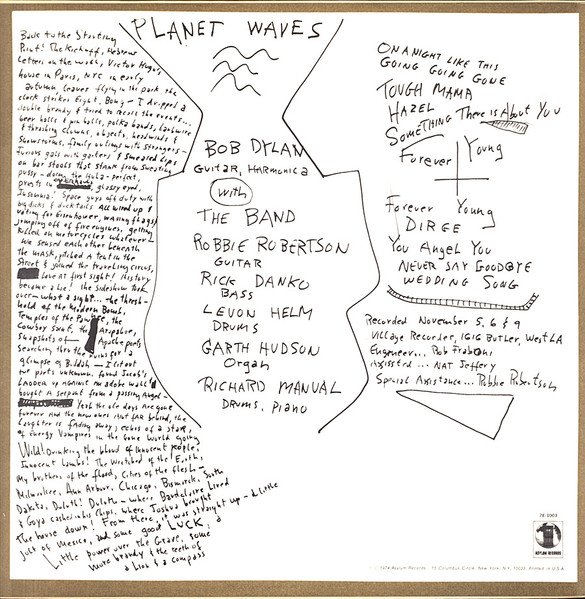 PLANET WAVES
Back to the Starting
Point! The Kickoff, Hebrew
Letters on the wall, Victor Hugo's
house in Paris, NYC in early
autumn, leaves flying in the park, the
clock strikes Eight, Bong— I dropped a
double brandy & tried to recall the events...
beer halls & pin balls, polka bands, barbwire
& thrashing clowns, objects, headwinds &
snowstorms, family outings with strangers—
Furious gals with garters & smeared lips
on bar stools that stank from sweating
pussy— doing the Hula—perfect,
priests in overhauls, glassy eyed,
Insomnia! Space guys off duty with
big dicks & ducktails All wired up &
voting for Eisenhower, waving flags &
jumping off of fire engines, getting
killed on motorcycles whatever—
We sensed each other beneath
the mask, pitched a tent in the
Street & joined the traveling circus,
love at first sight! History
became a lie! the sideshow took
over— what a sight... the thresh-
hold of the Modern Bomb,
Temples of the Pawnee, the
Cowboy Saint, the Arapahoe,
snapshots of Apache poets
searching thru the ruins for a
glimpse of Buddah— I lit out
for parts unknown, found Jacob's
Ladder up against an adobe wall &
bought A serpent from a passing Angel—
Yeah the ole days Are gone
forever And the new ones Aint fAR behind, the
Laughter is fAding away, echos of a staR,
of Energy Vampires in the Gone World going
Wild! Drinking the blood of innocent people,
Innocent Lambs! The Wretched of the Earth,
My brothers of the flood, Cities of the flesh—
Milwaukee, Ann Arbor, Chicago, Bismarck, South
Dakota, Duluth! Duluth— where Baudelaire Lived
& Goya cashed in his Chips, where Joshua brought
the house down! From there, it was straight up— a little
jolt of Mexico, and some good LUCK, a
Little power over the Grave, some
more brandy & the teeth of
a lion & a compass
BOB DYLAN
GUITAR, HARMONICA
With
THE BAND
ROBBIE ROBERTSON
GUITAR
RICK DANKO
BASS
LEVON HELM
DRUMS
GARTH HUDSON
Organ
RICHARD MANUAL
DRUMS, PIANO
ON A NIGHT LIKE THIS
GOING GOING GONE
TOUGH MAMA
HAZEL
SOMETHING There is About You
Forever Young
Forever Young
DIRGE
You Angel You
NEVER SAY GOODBYE
WEDDING SONG
Recorded November 5, 6 & 9
Village Recorder, 1616 Butler, West LA
Engineer... Rob Fraboni
Assisted... NAT Jeffrey
Special Assistance... Robbie Robertson
7E-1003
ASYLUM RECORDS
© 1974 Asylum Records · 15 Columbus Circle, New York, N.Y. 10023 Printed in U.S.A.